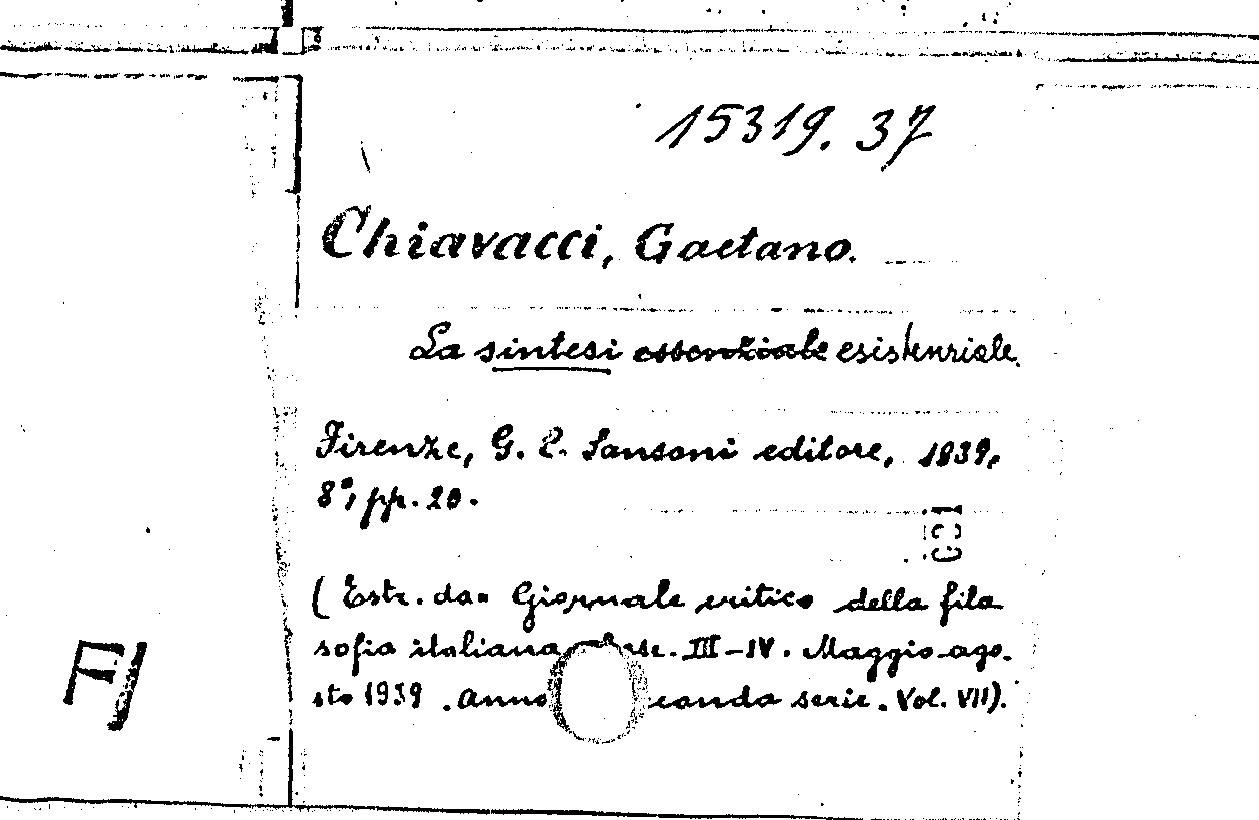 15319.37
Chiavacci, Gaetano.
La sintesi essenziale esistenziale.
Firenze, G. C. Sansoni editore, 1939,
8°, pp. 20.
( Estr. da= Giornale critico della filo
sofia italiana III-IV. Maggio-ago.
sto 1939. anno serie. Vol. VII).
FI